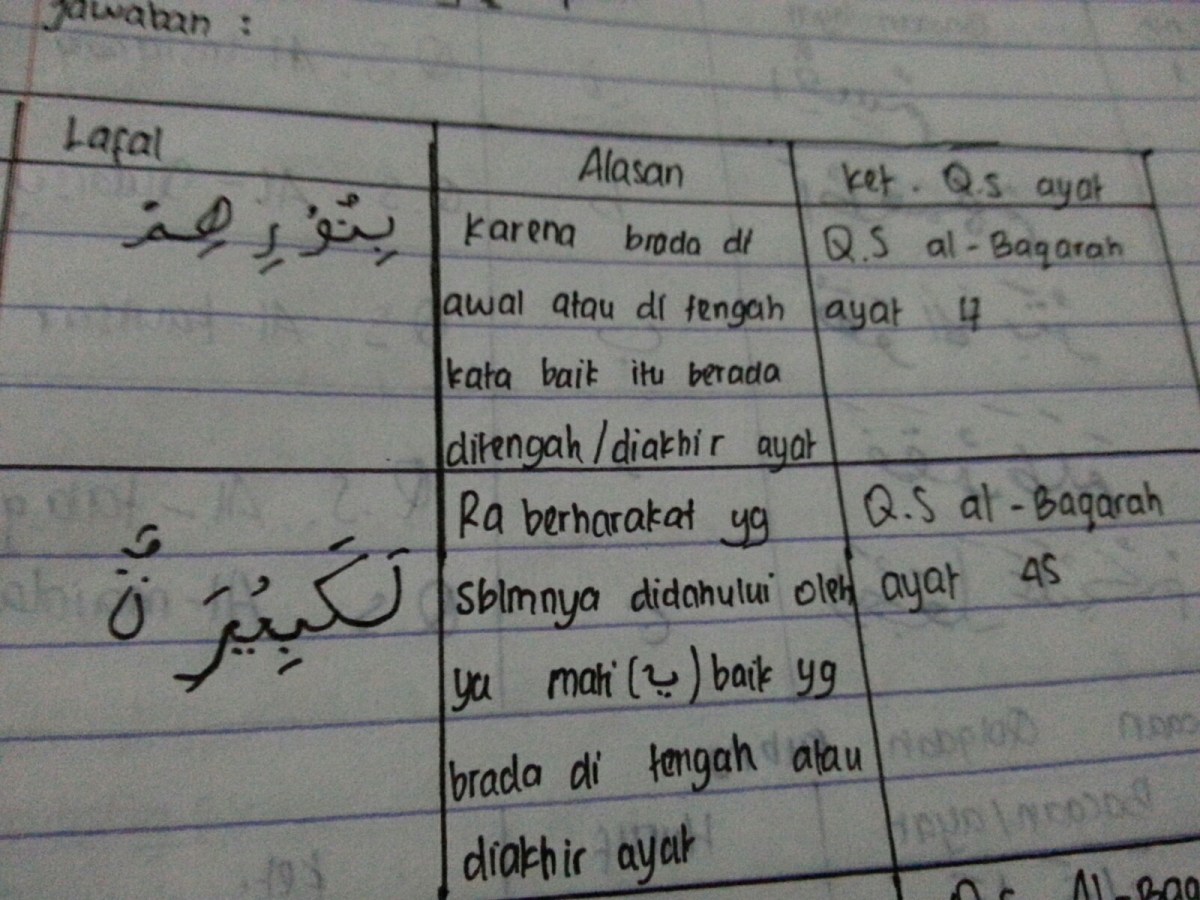 Jawaban :
Lafal
Alasan
ket. Q.S ayat
بِنُوْرِهِمْ
karena brada di
awal atau di tengah
kata baik itu berada
ditengah/diakhir ayat
Q.S al-Baqarah
ayat 17
لَكَبِيْرَ
Ra berharakat yg
sblmnya didahului oleh
ya mati (ي) baik yg
brada di tengah atau
diakhir ayat
Q.S al-Baqarah
ayat 45